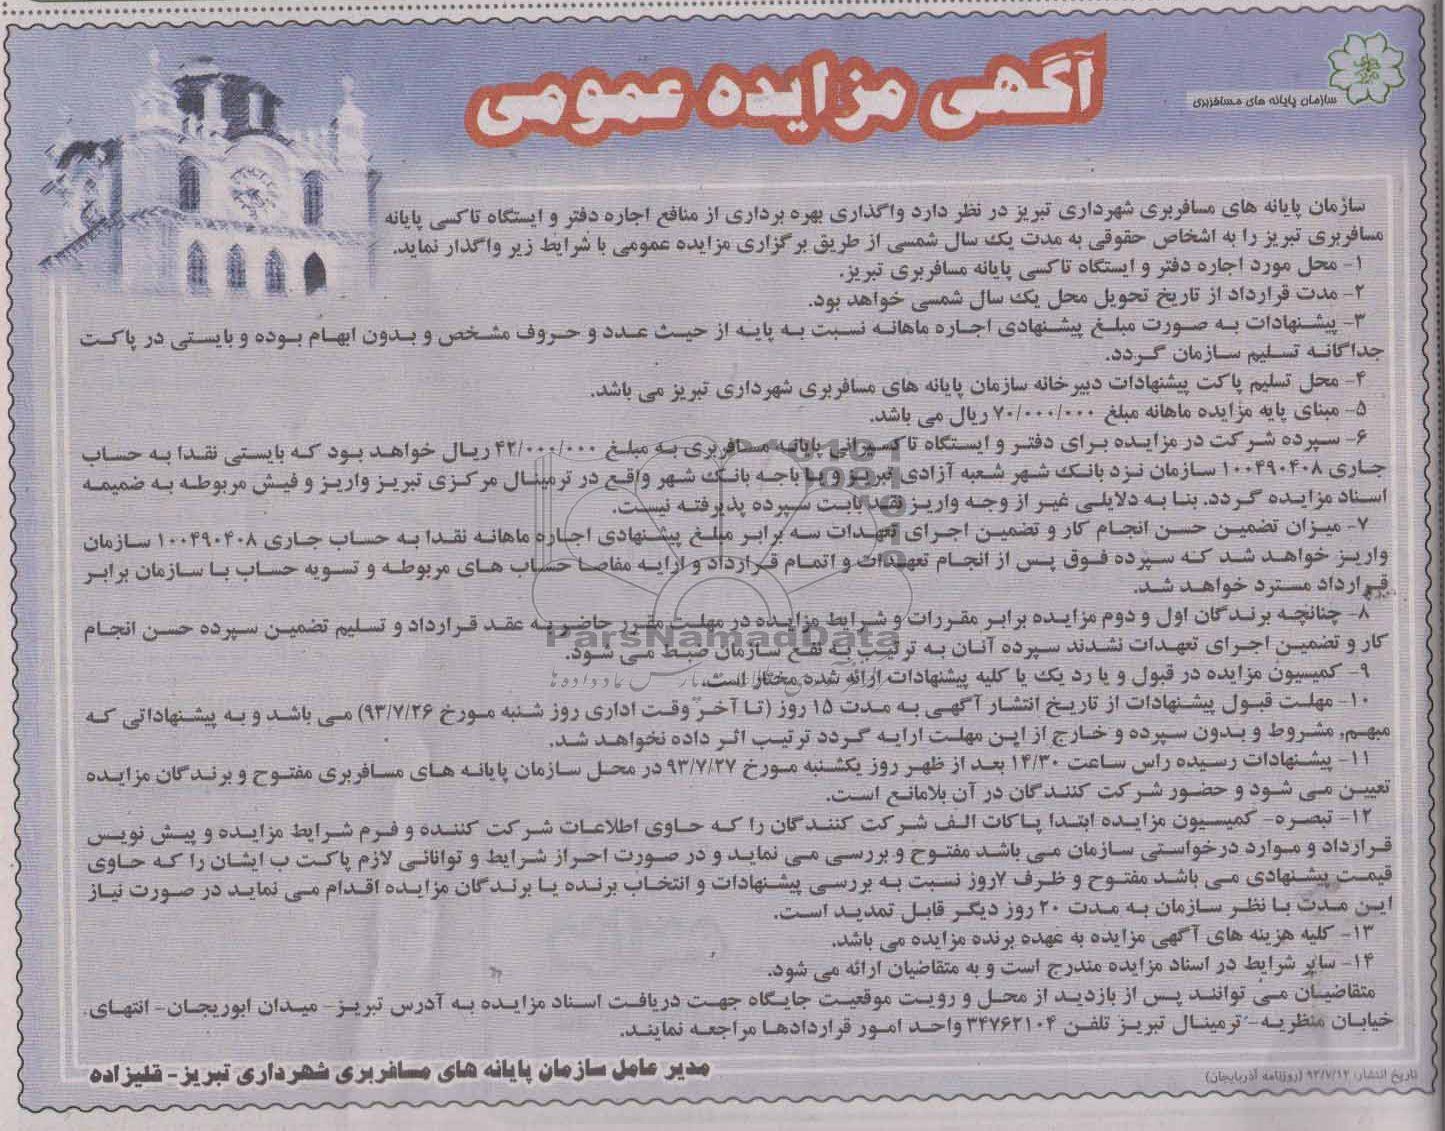 آگهی مزایده عمومی
سازمان پایانه های مسافربری
سازمان پایانه های مسافربری شهرداری تبریز در نظر دارد واگذاری بهره برداری از منافع اجاره دفتر و ایستگاه تاکسی پایانه
مسافربری تبریز را به اشخاص حقوقی به مدت یک سال شمسی از طریق برگزاری مزایده عمومی با شرایط زیر واگذار نماید.
۱- محل مورد اجاره دفتر و ایستگاه تاکسی پایانه مسافربری تبریز.
۲- مدت قرارداد از تاریخ تحویل محل یک سال شمسی خواهد بود.
۳- پیشنهادات به صورت مبلغ پیشنهادی اجاره ماهانه نسبت به پایه از حیث عدد و حروف مشخص و بدون ابهام بوده و بایستی در پاکت
جداگانه تسلیم سازمان گردد.
۴- محل تسلیم پاکت پیشنهادات دبیرخانه سازمان پایانه های مسافربری شهرداری تبریز می باشد.
۵- مبنای پایه مزایده ماهانه مبلغ ۷۰/۰۰۰/۰۰۰ ریال می باشد.
۶- سپرده شرکت در مزایده برای دفتر و ایستگاه تاکسیرانی پایانه مسافربری به مبلغ ۴۲/۰۰۰/۰۰۰ ریال خواهد بود که بایستی نقدا به حساب
جاری ۱۰۰۴۹۰۴۰۸ سازمان نزد بانک شهر شعبه آزادی تبریز و یا باجه بانک شهر واقع در ترمینال مرکزی تبریز واریز و فیش مربوطه به ضمیمه
اسناد مزایده گردد. بنا به دلایلی غیر از وجه واریز نقد بابت سپرده پذیرفته نیست.
۷- میزان تضمین حسن انجام کار و تضمین اجرای تعهدات سه برابر مبلغ پیشنهادی اجاره ماهانه نقدا به حساب جاری ۱۰۰۴۹۰۴۰۸ سازمان
واریز خواهد شد که سپرده فوق پس از انجام تعهدات و اتمام قرارداد و ارایه مفاصا حساب های مربوطه و تسویه حساب با سازمان برابر
قرارداد مسترد خواهد شد.
۸- چنانچه برندگان اول و دوم مزایده برابر مقررات و شرایط مزایده در مهلت مقرر حاضر به عقد قرارداد و تسلیم تضمین سپرده حسن انجام
کار و تضمین اجرای تعهدات نشدند سپرده آنان به ترتیب به نفع سازمان ضبط می شود.
ParsNamadData
۹- کمیسیون مزایده در قبول و یا رد یک یا کلیه پیشنهادات ارائه شده مختار است.
۱۰- مهلت قبول پیشنهادات از تاریخ انتشار آگهی به مدت ۱۵ روز (تا آخر وقت اداری روز شنبه مورخ ۹۳/۷/۲۶) می باشد و به پیشنهاداتی که
مبهم، مشروط و بدون سپرده و خارج از این مهلت ارایه گردد ترتیب اثر داده نخواهد شد.
۱۱- پیشنهادات رسیده راس ساعت ۱۴/۳۰ بعد از ظهر روز یکشنبه مورخ ۹۳/۷/۲۷ در محل سازمان پایانه های مسافربری مفتوح و برندگان مزایده
تعیین می شود و حضور شرکت کنندگان در آن بلامانع است.
۱۲- تبصره- کمیسیون مزایده ابتدا پاکات الف شرکت کنندگان را که حاوی اطلاعات شرکت کننده و فرم شرایط مزایده و پیش نویس
قرارداد و موارد درخواستی سازمان می باشد مفتوح و بررسی می نماید و در صورت احراز شرایط و توانائی لازم پاکت ب ایشان را که حاوی
قیمت پیشنهادی می باشد مفتوح و ظرف ۷روز نسبت به بررسی پیشنهادات و انتخاب برنده یا برندگان مزایده اقدام می نماید در صورت نیاز
این مدت با نظر سازمان به مدت ۲۰ روز دیگر قابل تمدید است.
۱۳- کلیه هزینه های آگهی مزایده به عهده برنده مزایده می باشد.
۱۴- سایر شرایط در اسناد مزایده مندرج است و به متقاضیان ارائه می شود.
متقاضیان می توانند پس از بازدید از محل و رویت موقعیت جایگاه جهت دریافت اسناد مزایده به آدرس تبریز- میدان ابوریحان- انتهای
خیابان منظریه- ترمینال تبریز تلفن ۳۴۷۶۲۱۰۴ واحد امور قراردادها مراجعه نمایند.
مدیر عامل سازمان پایانه های مسافربری شهرداری تبریز- قلیزاده
تاریخ انتشار: ۹۳/۷/۱۲ (روزنامه آذربایجان)